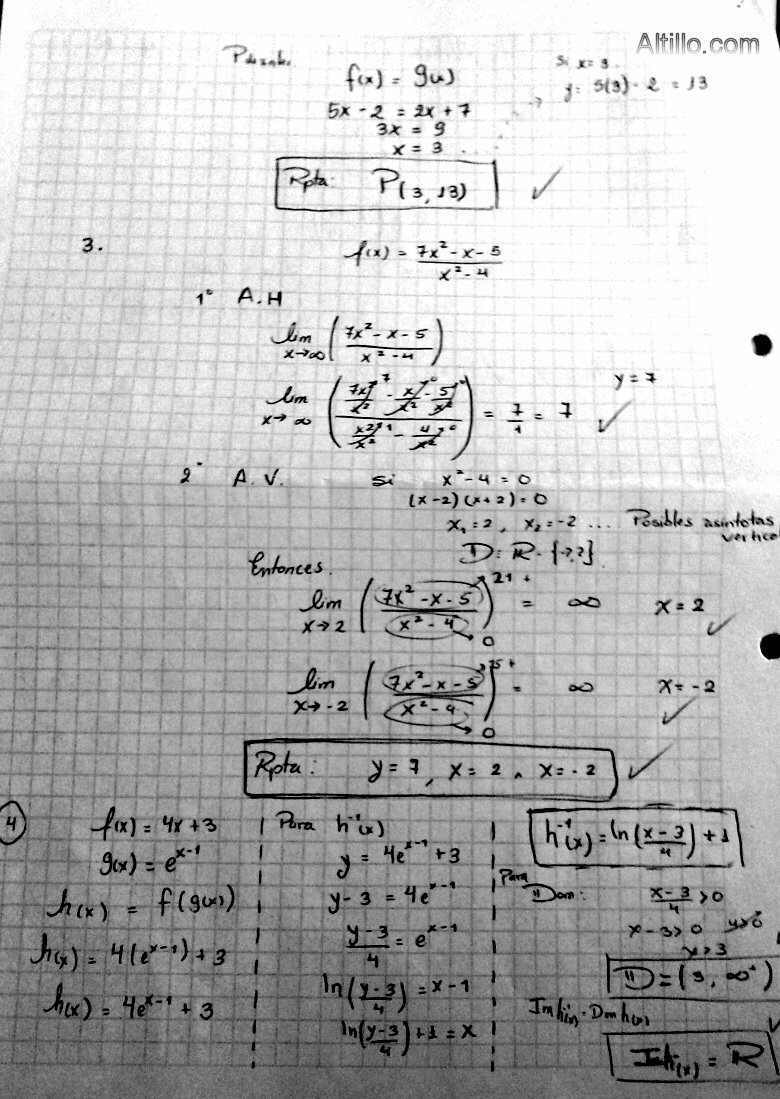 Altillo.com
f(x) = g(x)
5x - 2 = 2x + 7
3x = 9
x = 3
Si x = 3.
y = 5(3) - 2 = 13
Rpta: P(3, 13)
3.
f(x) = \frac{7x² - x - 5}{x² - 4}
1° A.H
lim x→∞ (\frac{7x² - x - 5}{x² - 4})
lim x→∞ (\frac{\frac{7x²}{x²} - \frac{x}{x²} - \frac{5}{x²}}{\frac{x²}{x²} - \frac{4}{x²}}) = \frac{7}{1} = 7
y = 7
2° A.V. si x² - 4 = 0
(x - 2)(x + 2) = 0
x₁ = 2, x₂ = -2 ... Posibles asintotas vertical
Entonces.
lim x→2 (\frac{7x² - x - 5}{x² - 4}) 21 + 0 = ∞ x = 2
lim x→-2 (\frac{7x² - x - 5}{x² - 4}) 0 = ∞ x = -2
Rpta: y = 7, x = 2 ∧ x = -2
4
f(x) = 4x + 3
g(x) = e^{x-1}
h(x) = f(g(x))
h(x) = 4(e^{x-1}) + 3
h(x) = 4e^{x-1} + 3
Para h⁻¹(x)
y = 4e^{x-1} + 3
y - 3 = 4e^{x-1}
\frac{y-3}{4} = e^{x-1}
ln(\frac{y-3}{4}) = x - 1
ln(\frac{y-3}{4}) + 1 = x
h⁻¹(x) = ln(\frac{x-3}{4}) + 1
Para
Dom: \frac{x-3}{4} > 0
x - 3 > 0
x > 3
D = (3, ∞⁺)
= ℝ